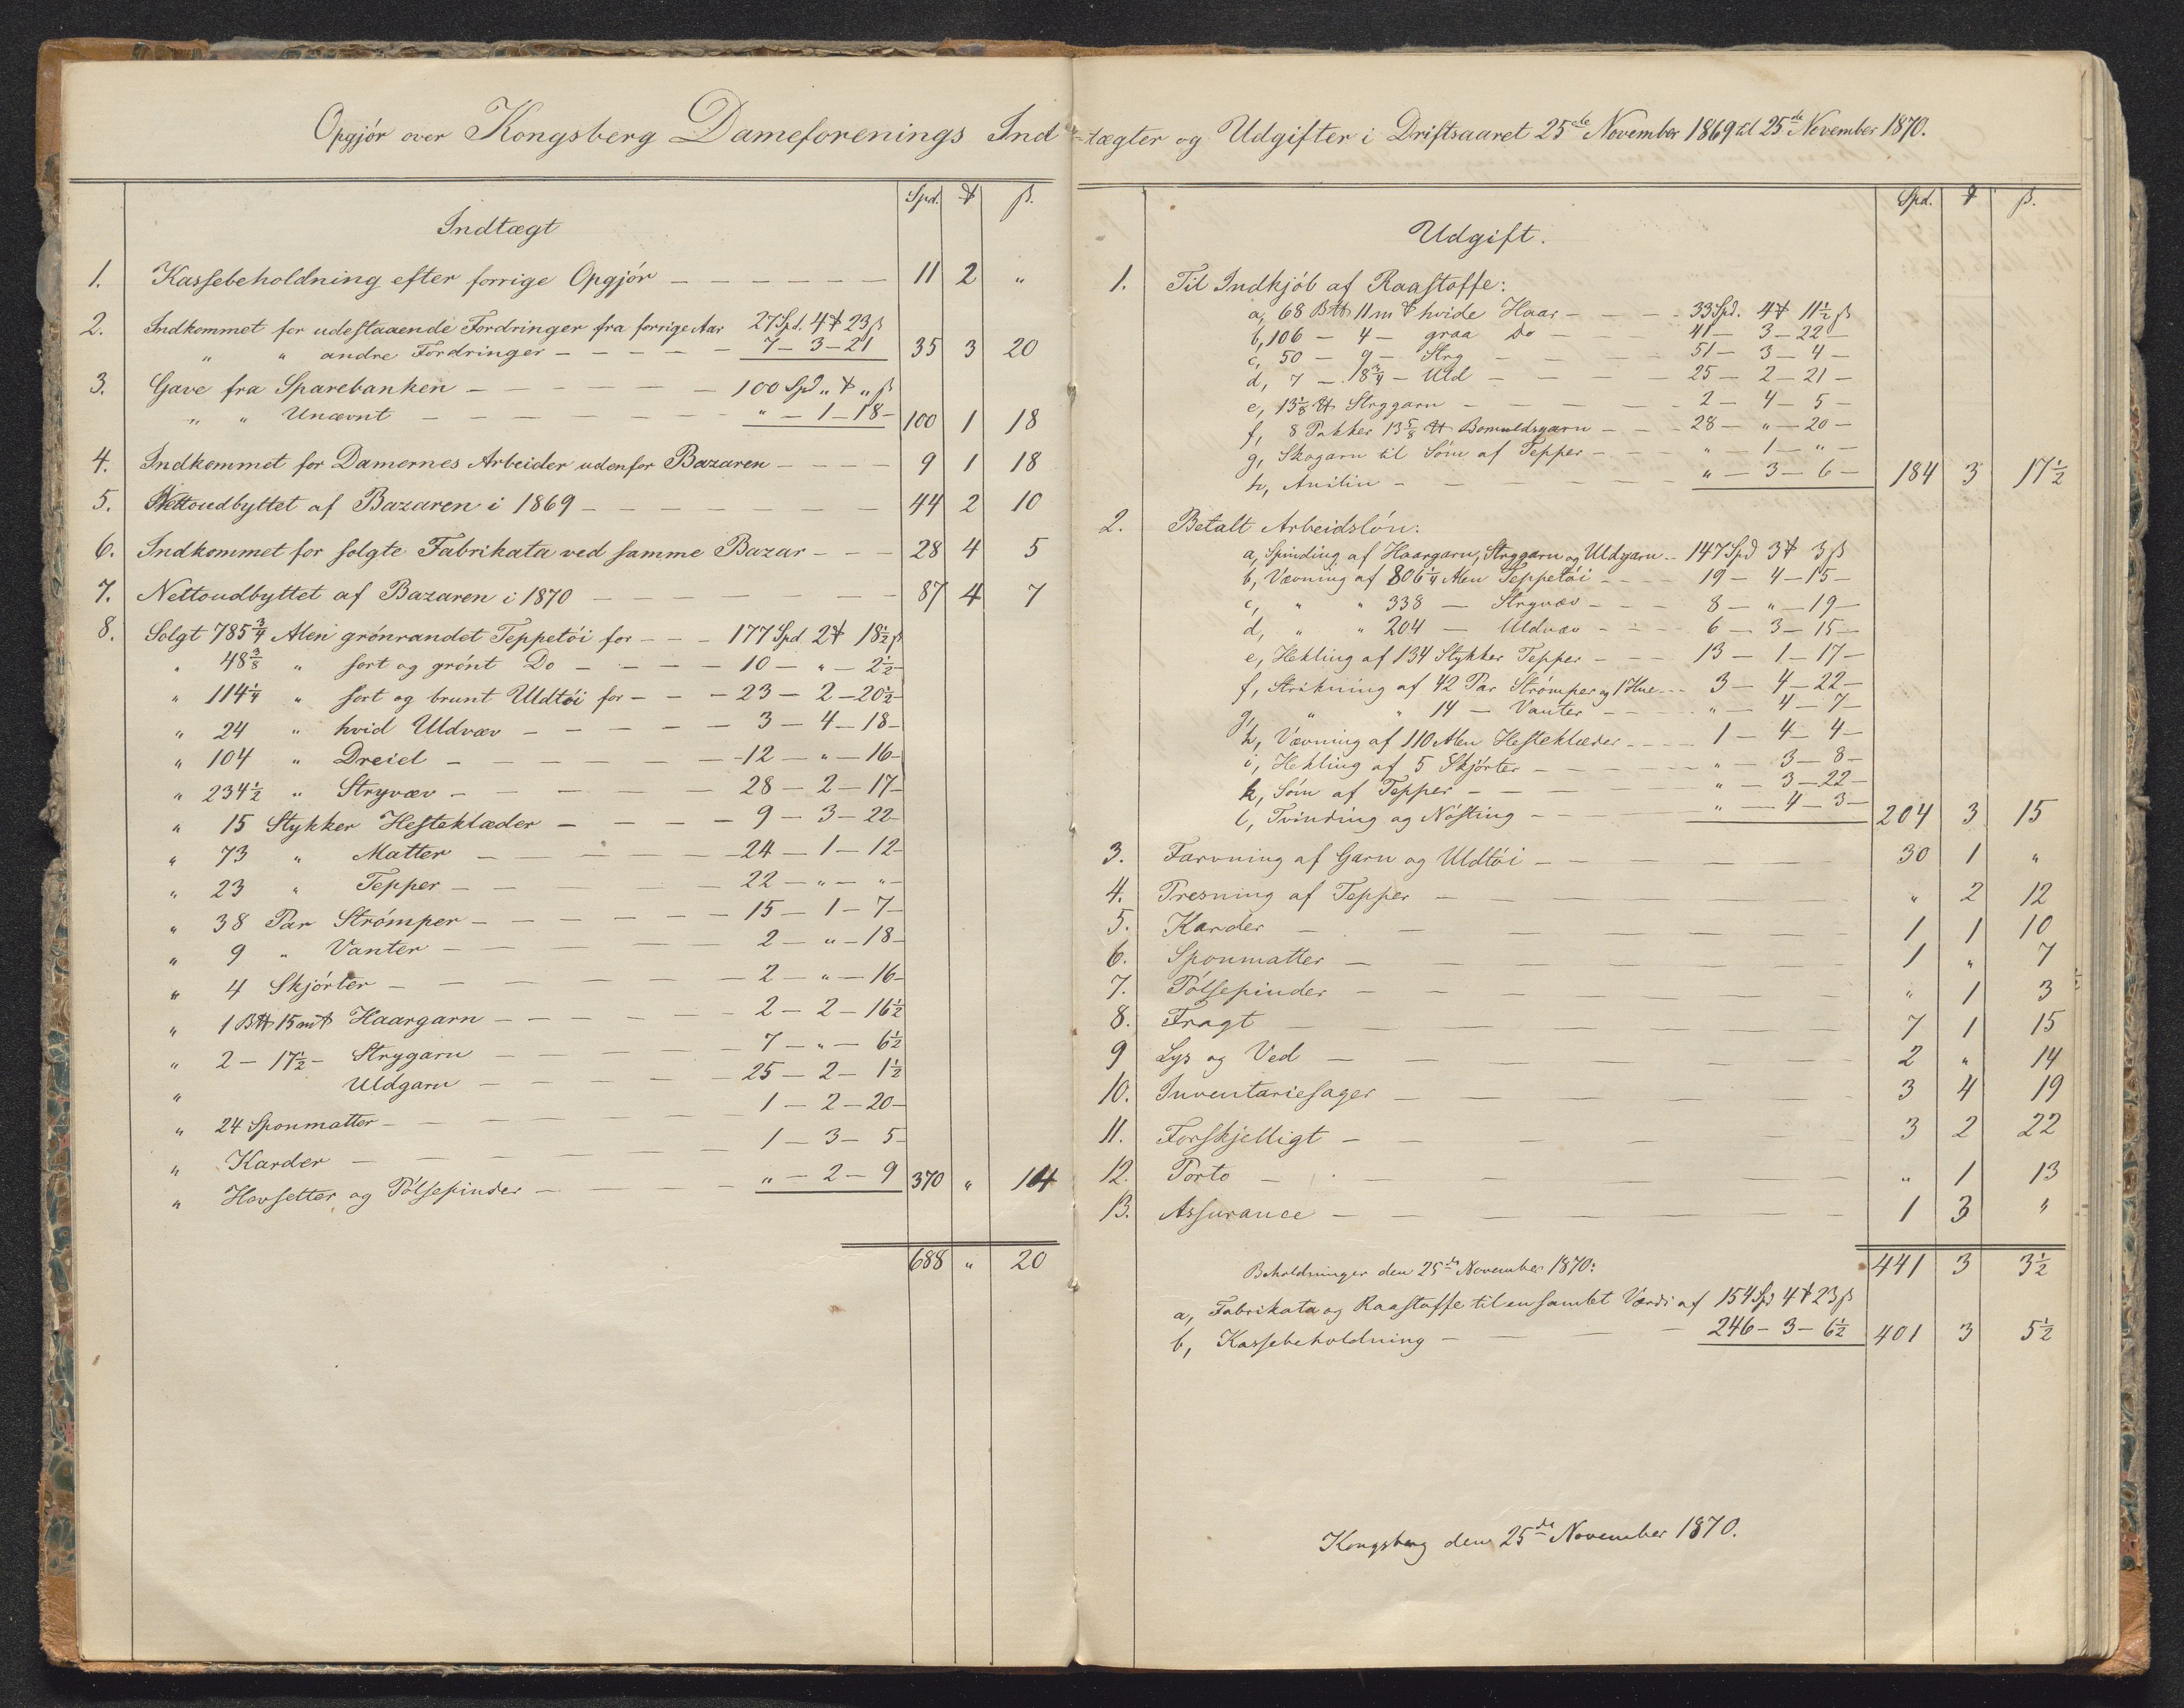 Opgjór over Kongsberg Dameforenings Ind-tægter og Udgifter i Driftsaaret 25de November 1869 til 25de November 1870.
Spd. ß.
Indtægt
1. Kassebeholdning efter forrige Opgjór 11 2 "
2. Indkommet for udestaaende Fordringer fra forrige Aar 27 Spd. 4 23 ß
" " andre Fordringer 7 – 3 – 21 35 3 20
3. Gave fra Sparebanken 100 Spd " " ß
" " Unævnt " – 1 – 18 – 100 1 18
4. Indkommet for Damernes Arbeider udenfor Bazaren 9 1 18
5. Nettoudbyttet af Bazaren i 1869 44 2 10
6. Indkommet for solgte Fabrikata ved samme Bazar 28 4 5
7. Nettoudbyttet af Bazaren i 1870 87 4 7
8. Solgt 785 3/4 Alen grónrandet Teppetói for 177 Spd 2 18 1/2 ß
" 48 3/8 " sort og grónt Do 10 – " – 2 1/2 –
" 114 1/4 " sort og brunt Uldtói for 23 – 2 – 20 1/2 –
" 24 " hvid Uldvæv 3 – 4 – 18 –
" 104 " Dreiel 12 – " – 16 –
" 234 1/2 " Stryvæv 28 – 2 – 17 –
" 15 Stykker Hesteklæder 9 – 3 – 22 –
" 73 " Matter 24 – 1 – 12 –
" 23 " Tepper 22 – " – " –
" 38 Par Strómper 15 – 1 – 7 –
" 9 " Vanter 2 – " – 18 –
" 4 Skjórter 2 – " – 16 –
" 1 B℔ 15 m Haargarn 2 – 2 – 16 1/2
" 2 – 17 1/2 – Strygarn 7 – " – 6 1/2
" Uldgarn 25 – 2 – 1 1/2
" 24 Sponmatter 1 – 2 – 20 –
" Karder 1 – 3 – 5
" Hovsetter og Pólsepinder " – 2 – 9 370 " 14
688 " 20
Spd. ß.
Udgift.
1. Til Indkjób af Raastoffe:
a, 68 B℔ 11 m hvide Haar 33 Spd. 4 11 1/2 ß
b, 106 – 4 – graa Do 41 – 3 – 22 –
c, 50 – 9 – Stry 51 – 3 – 4 –
d, 7 – 18 3/4 – Uld 25 – 2 – 21 –
e, 13 1/8 ℔ Strygarn 2 – 4 – 5 –
f, 8 Pakker 13 5/8 ℔ Bomuldsgarn 28 – " – 20 –
g, Skogarn til Sóm af Tepper " 1 – " –
h, Anilin " – 3 – 6 – 184 3 17 1/2
2. Betalt Arbeidslón:
a, Spinding af Haargarn, Strygarn og Uldgarn 147 Spd 3 3 ß
b, Vævning af 806 1/4 Alen Teppetói 19 – 4 – 15 –
c, " " 338 – Stryvæv 8 – " – 19 –
d, " " 204 – Uldvæv 6 – 3 – 15 –
e, Hekling af 134 Stykker Tepper 13 – 1 – 17 –
f, Strikning af 42 Par Strómper og 1 Hue 3 – 4 – 22 –
g, " " 14 – Vanter " – 4 – 7 –
h, Vævning af 110 Alen Hesteklæder 1 – 4 – 4 –
i, Hekling af 5 Skjórter " – 3 – 8 –
k, Sóm af Tepper " – 3 – 22 –
l, Tvinding og Nósting " – 4 – 3 – 204 3 15
3. Farvning af Garn og Uldtói 30 1 "
4. Presning af Tepper " 2 12
5. Karder 1 1 10
6. Sponmatter 1 " 7
7. Pólsepinder " 1 3
8. Fragt 7 1 15
9 Lys og Ved 2 " 14
10. Inventariesager 3 4 19
11. Forskjelligt 3 2 22
12. Porto " 1 13
13. Assurance 1 3 "
441 3 3 1/2
Beholdninger den 25de November 1870:
a, Fabrikata og Raastoffe til en samlet Værdi af 154 Spd 4 23 ß
b, Kassebeholdning 246 – 3 – 6 1/2 401 3 5 1/2
Kongsberg den 25de November 1870.